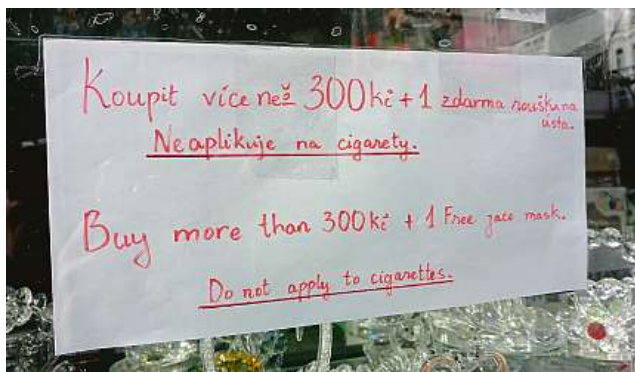 Koupit více než 300kč + 1 zdarma rouškuna
usta.
Neaplikuje na cigarety.
Buy more than 300kč + 1 Free face mask.
Do not apply to cigarettes.